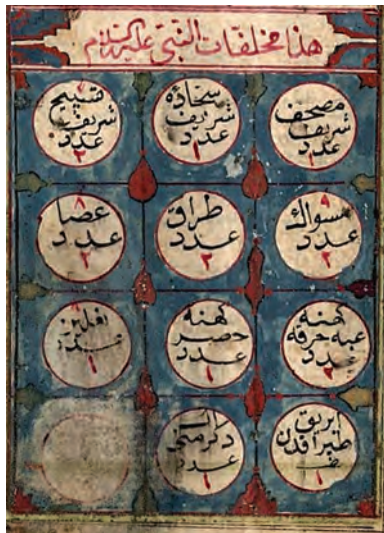 هذا مخلفات النبي عليه السلام
مصحف
شريف
عدد
١
سجاده
شريف
عدد
١
تسبيح
شريف
عدد
٢
٩
مسواك
عدد
٢
طراق
عدد
٢
٨
عصا
عدد
٢
كهنه
عبه خرقه
عدد
٢
كهنه
حصير
عدد
١
نعلين
عدد
١
ابريق
طپراقدن
١
دكرمني
عدد
١